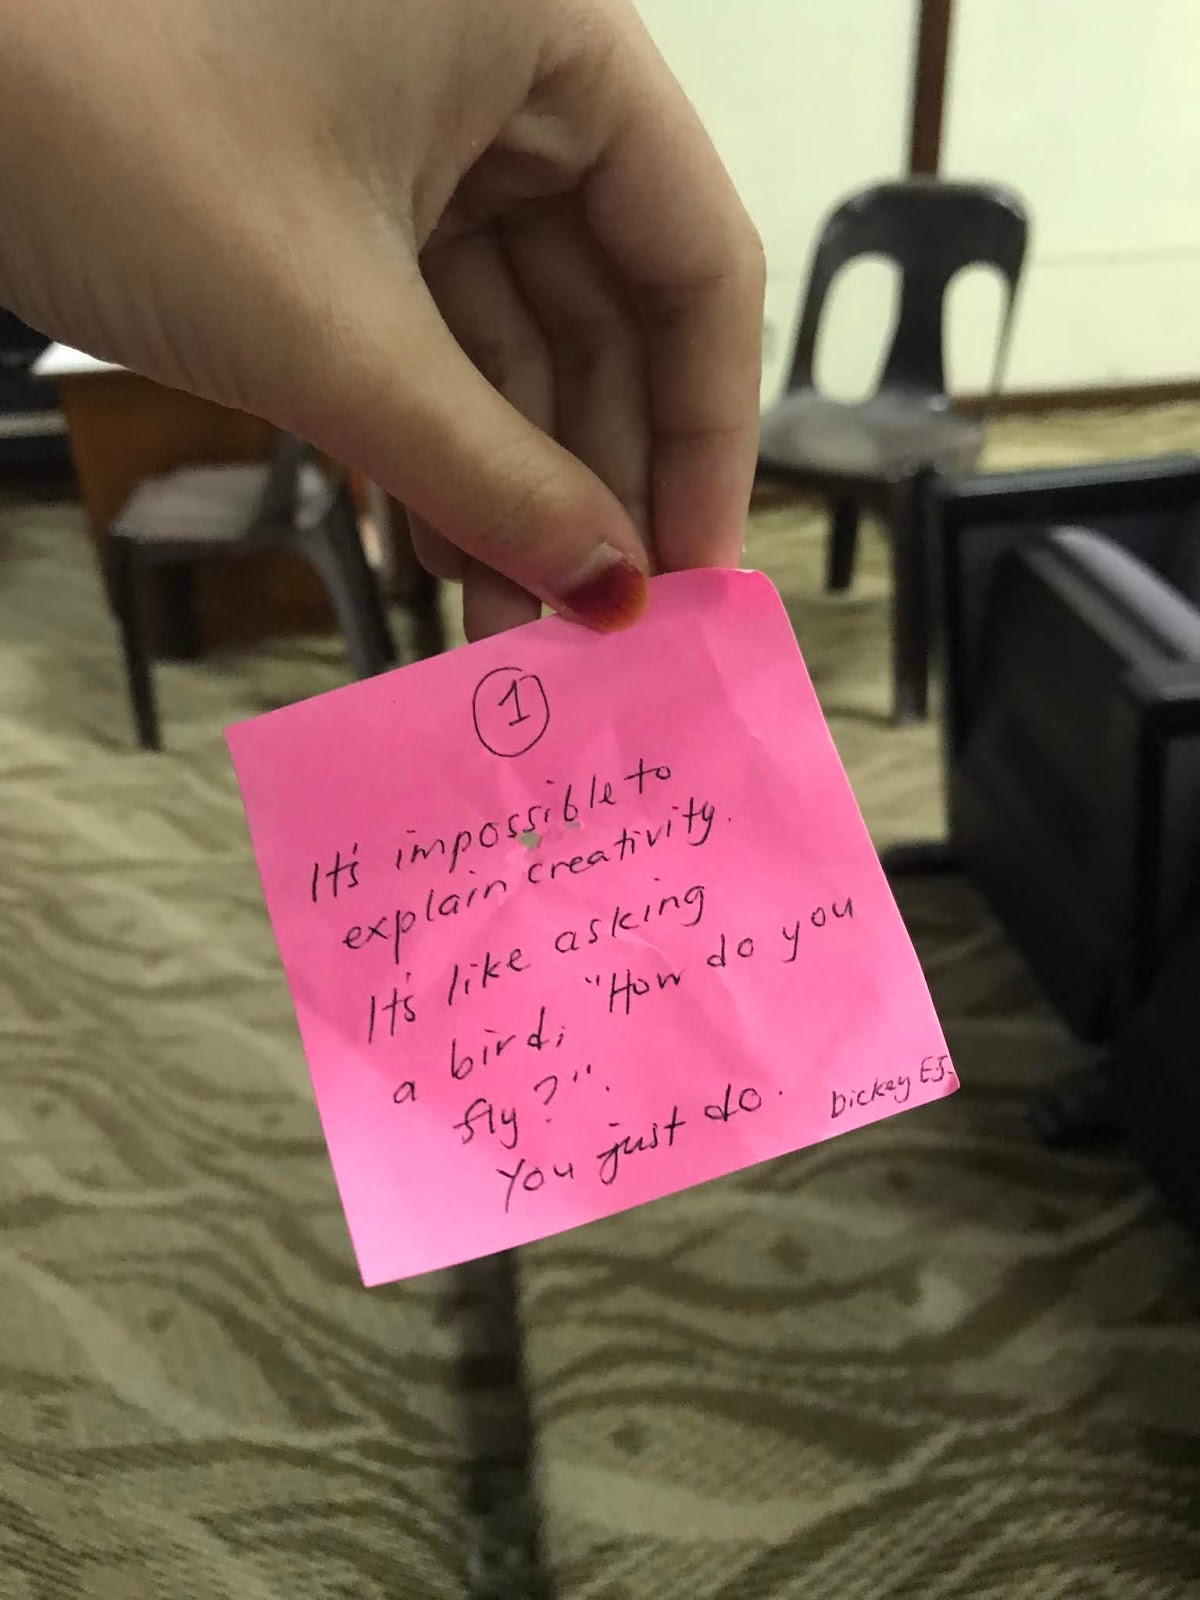 1
It's impossible to
explain creativity.
It's like asking
a bird; "How do you
fly?".
You just do.
Dickey EJ.